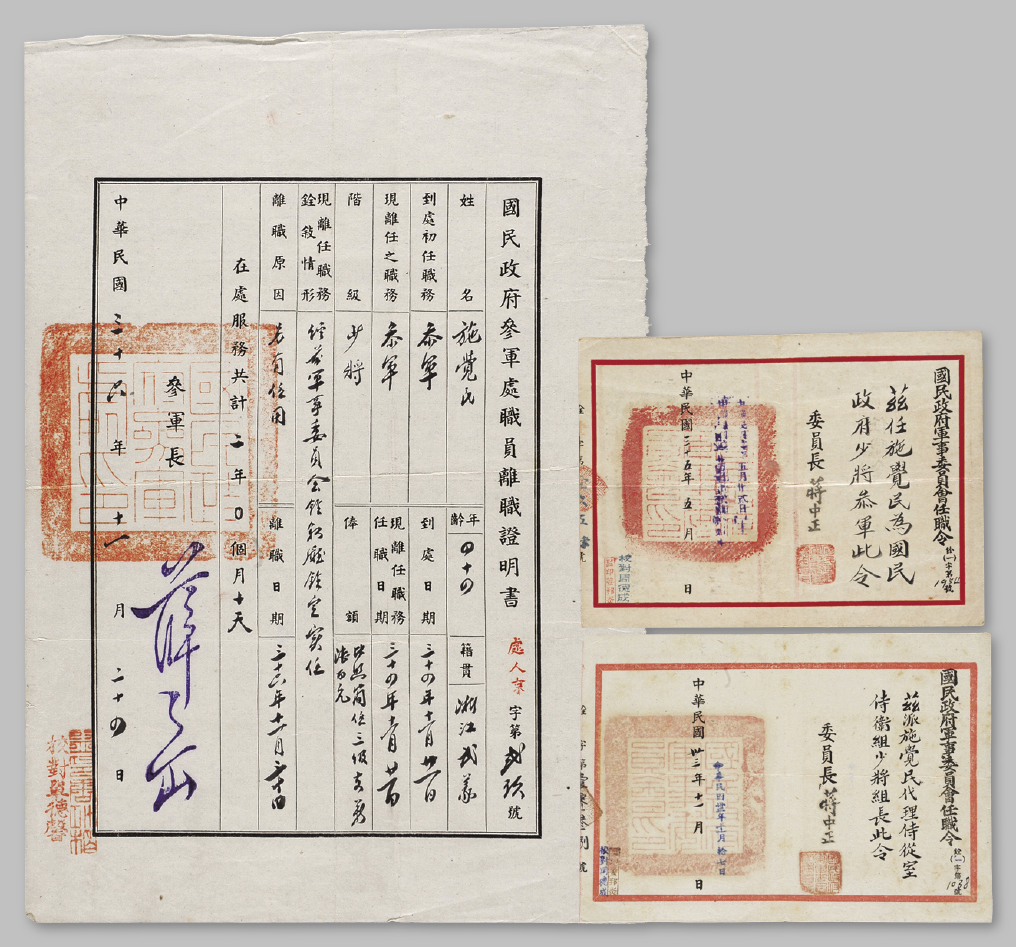 國民政府參軍處職員離職證明書 處人 字第貳玖號
姓名 施覺民 年齡 四十四 籍貫 浙江武義
到處初任職務 參軍 到處日期 三十四年十一月廿一日
現離任之職務 參軍 現離任職務任職日期 三十四年十一月
階級 少將 俸額 簡任三級
現離任職務銓敘情形 經前軍事委員會銓敘廳銓定實任
離職原因 另有任用 離職日期 三十六年十一月三十日
在處服務共計二年〇個月十天
參軍長 薛岳
中華民國三十六年十一月二十四日
校對單德馨
國民政府軍事委員會任職令
銓(一)字第號
茲任施覺民為國民
政府少將參軍此令
委員長蔣中正
中華民國三十五年五月 日
國民政府軍事委員會任職令
銓(一)字第號
茲派施覺民代理侍從室
侍衛組少將組長此令
委員長蔣中正
中華民國卅三年十一月 日